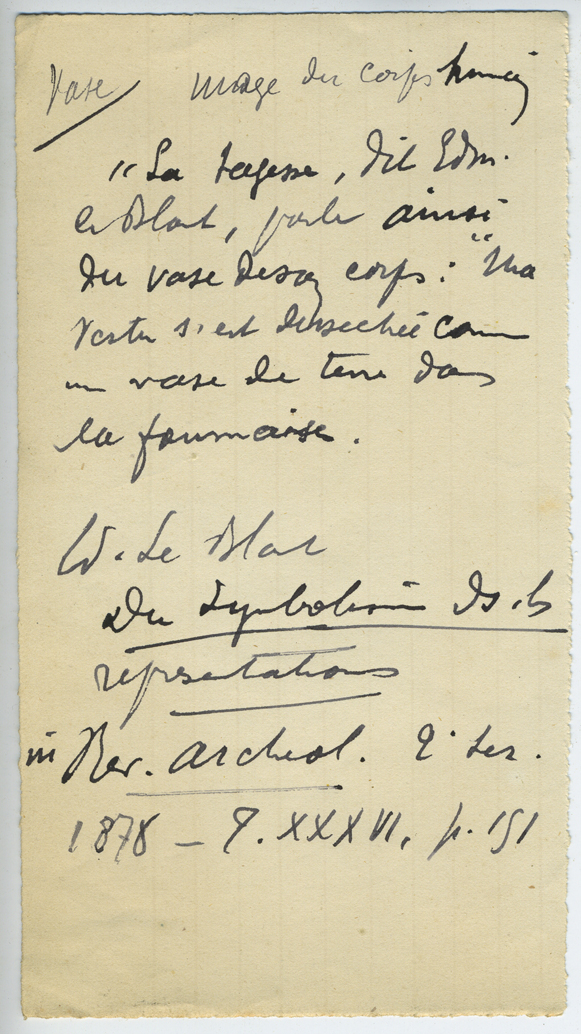 Vase image du corps humain
"La sagesse, dit Edm.
Le Blant, parle ainsi
du vase de son corps : "Ma
vertu s'est desséchée comme
un vase de terre dans
la fournaise.
Ed. Le Blant
Du Symbolisme ds. les
représentations
in Rev. Archéol. 2e ser.
1878 – T. XXXVI, p. 151